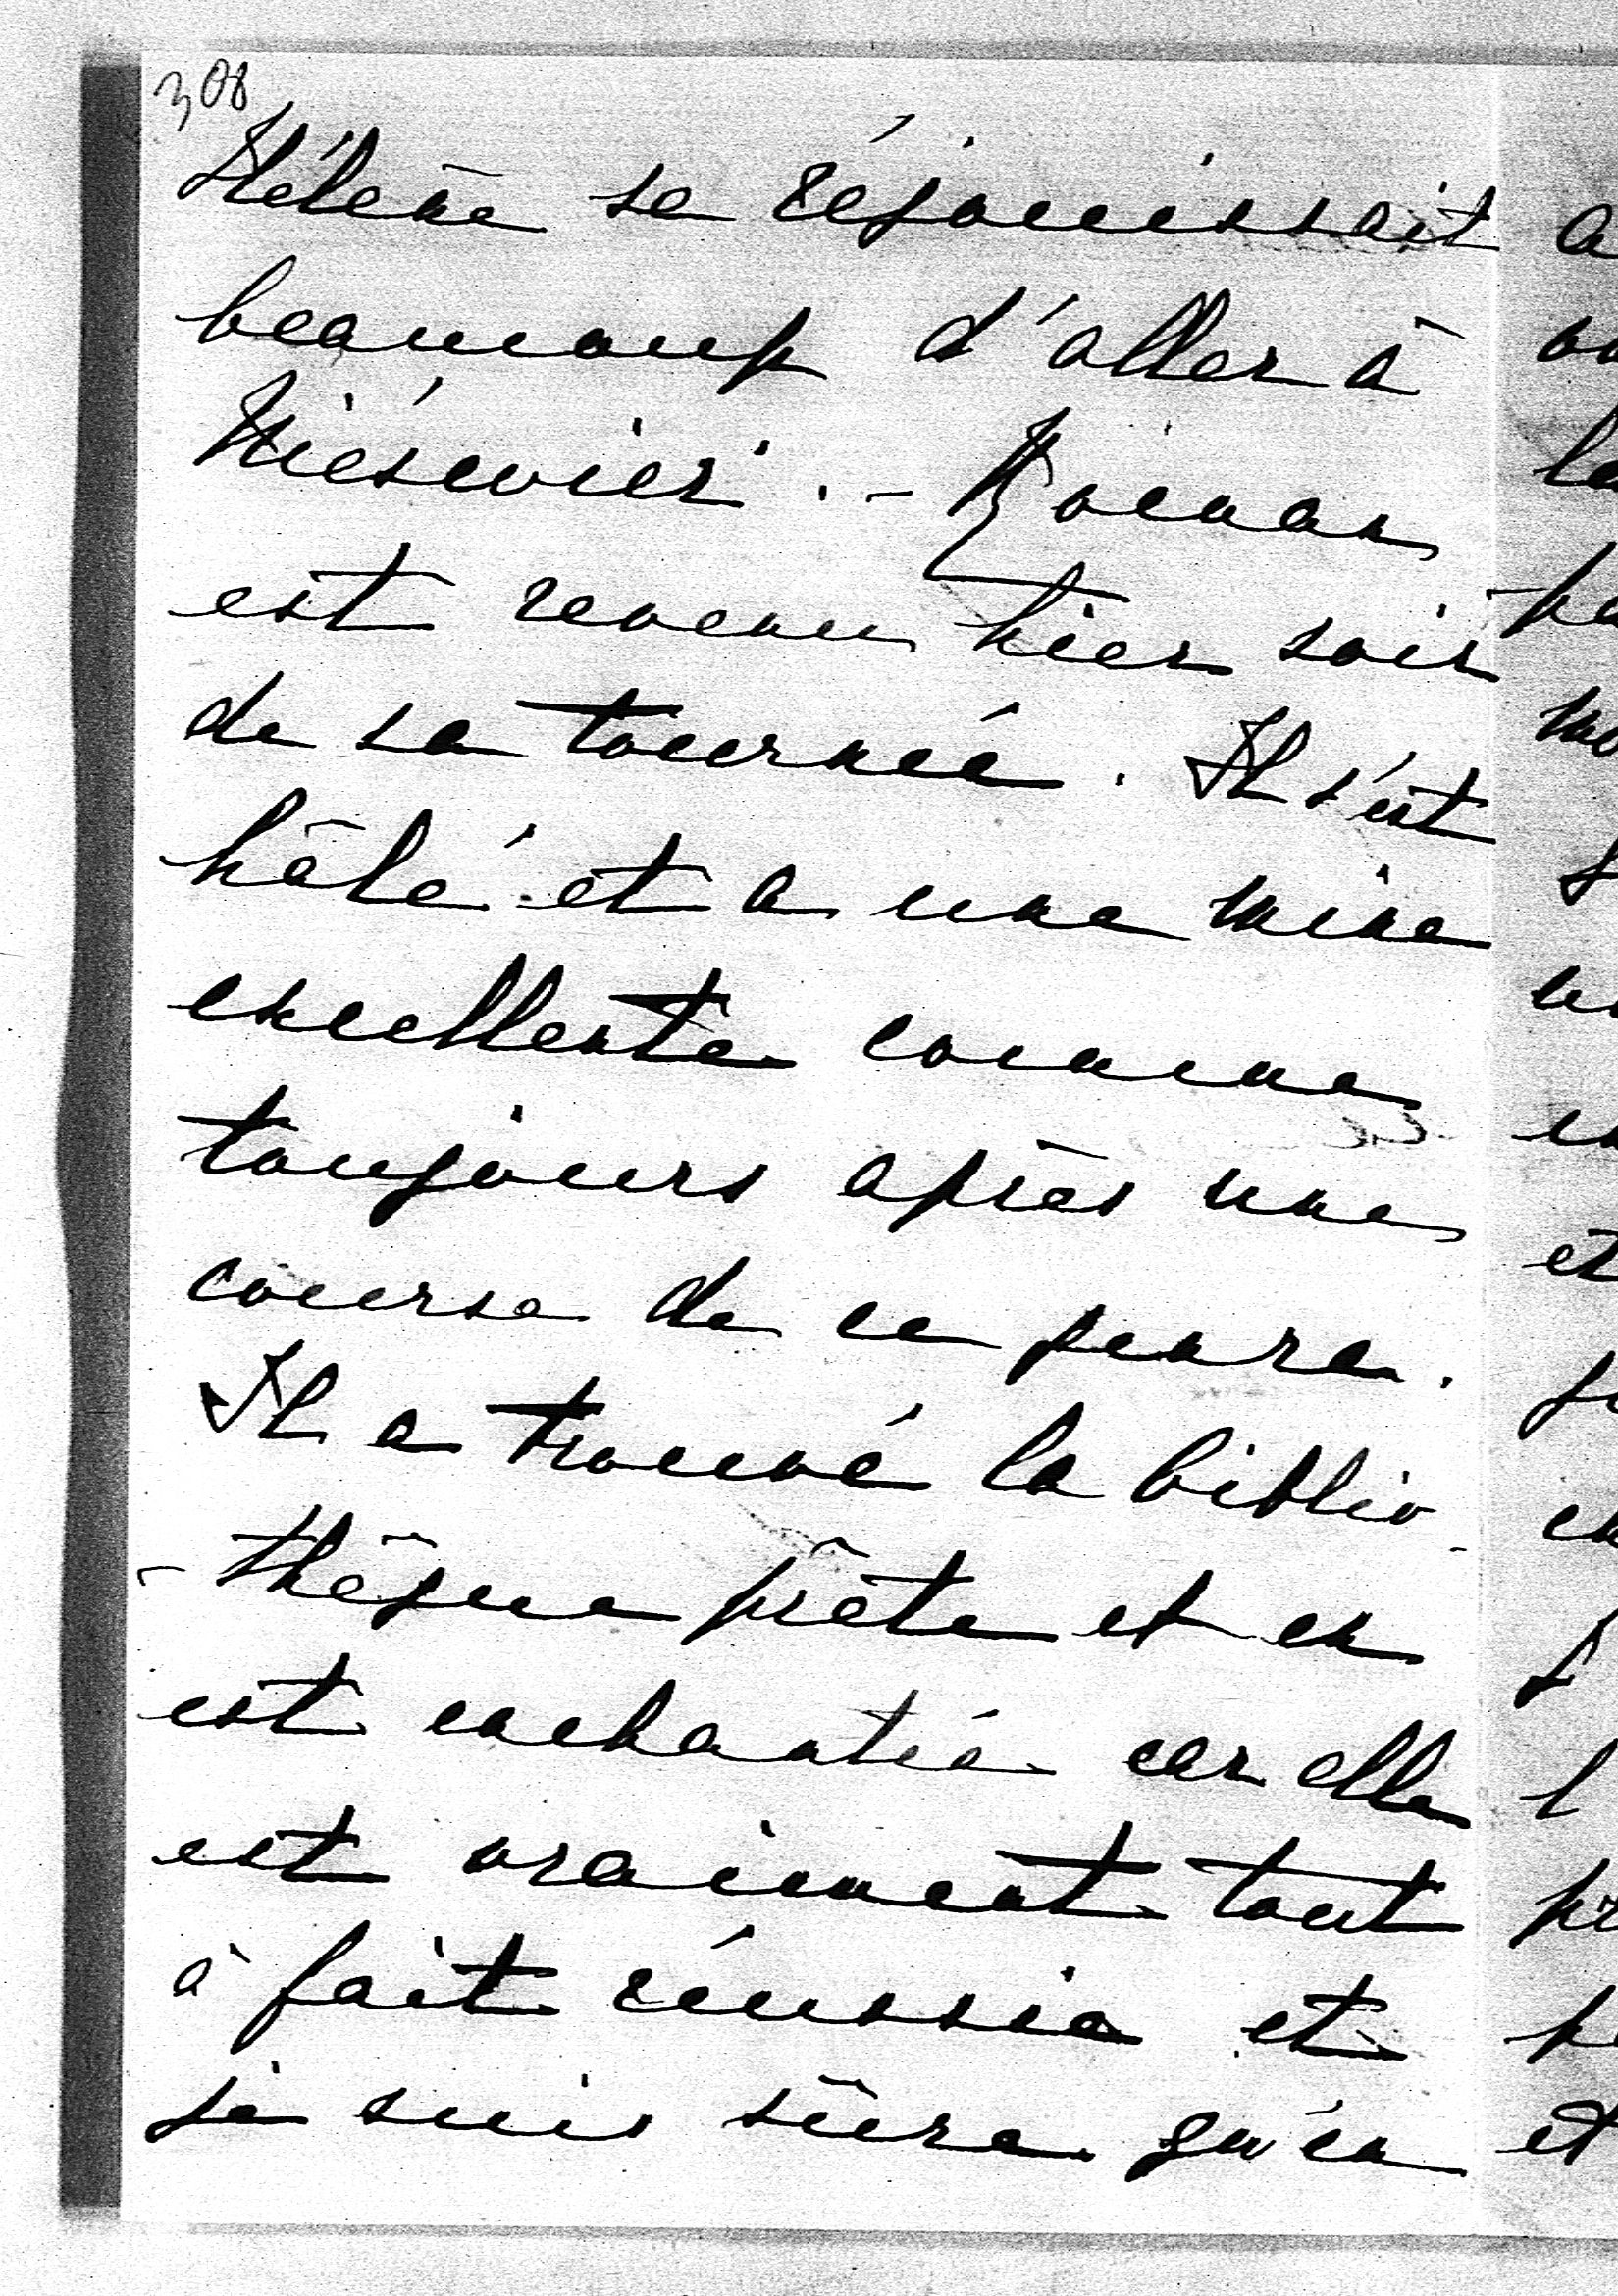 308
Hélène se réjouissait
beaucoup d'aller à
Niéswież. - Roman
est revenu hier soir
de sa tournée. Il s'est
hâlé et a une mine
excellente comme
toujours après une
course de ce genre.
Il a trouvé la biblio-
-thèque prête et en
est enchanté car elle
est vraiment tout
à fait réussie et
je suis sûre qu'en